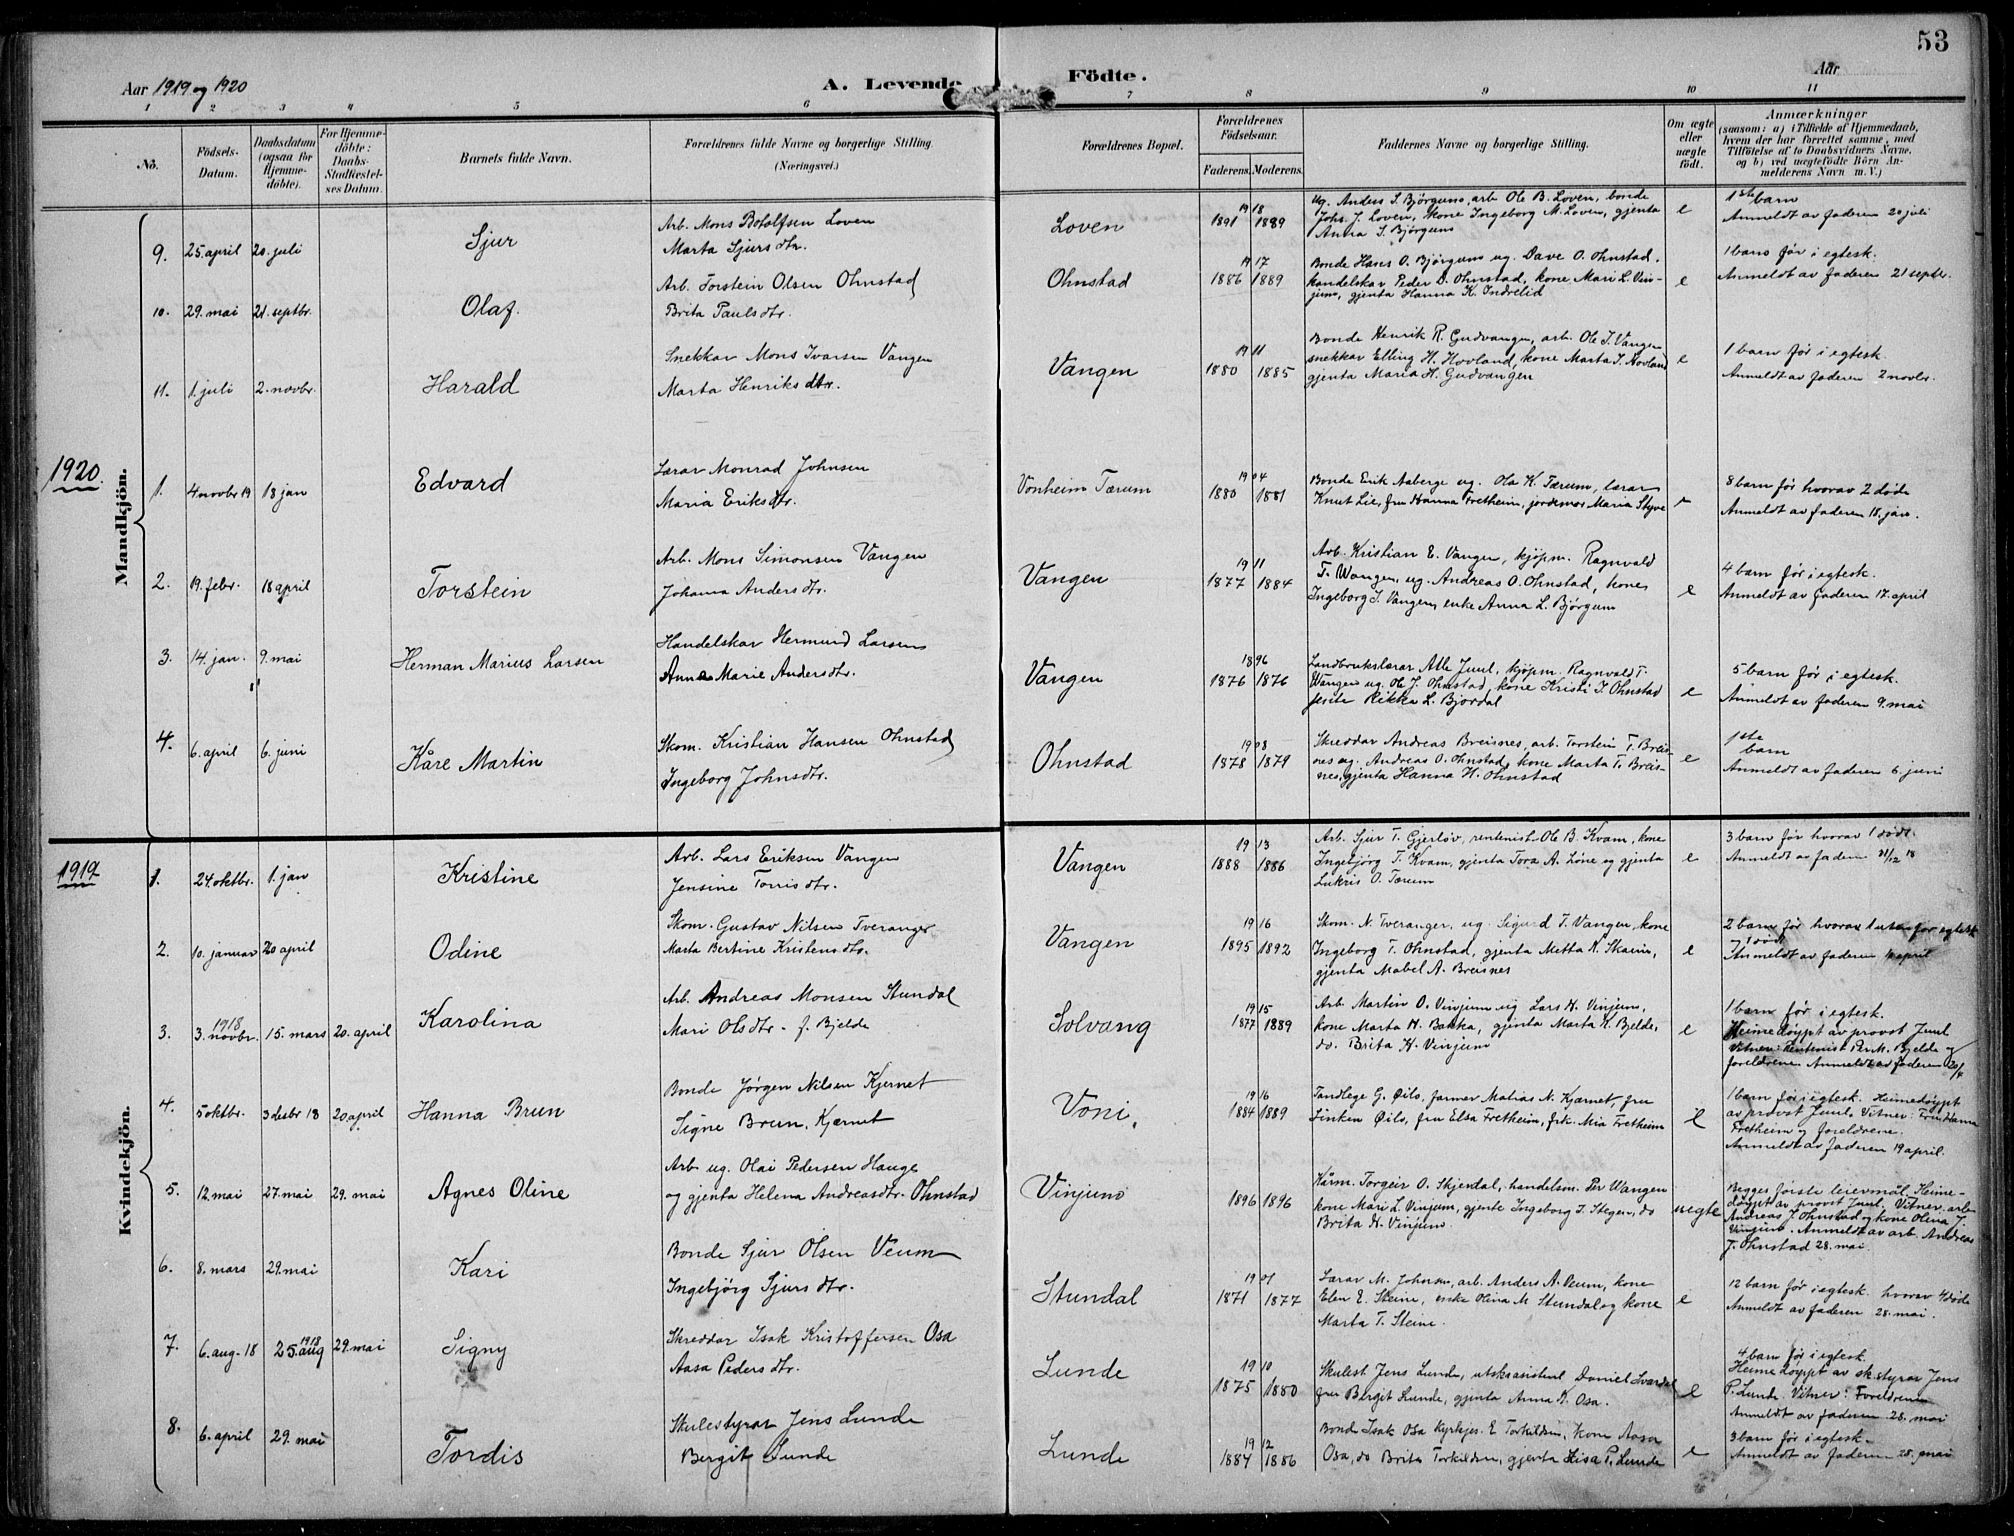 53
Aar 1919 og 1920
A. Levende Födte.
Aar
1 2 3 4 5 6 7 8 9 10 11
No.
Födsels-Datum.
Daabsdatum (ogsaa for Hjemme-döbte).
For Hjemme-döbte: Daabs-Stadfæstel-ses Datum.
Barnets fulde Navn.
Forældrenes fulde Navne og borgerlige Stilling. (Næringsvei.)
Forældrenes Bopæl.
Forældrenes Födselsaar.
Faderens. Moderens.
Faddernes Navne og borgerlige Stilling.
Om ægte eller uægte födt.
Anmærkninger (saasom: a) i Tilfælde af Hjemmedaab, hvem der har forrettet samme, med Tilföielse af to Daabsvidners Navne, og b) ved uægtefödte Börn An-melderens Navn m. V.)
Mandkjön.
9. 25. april 20. juli Sjur
Arb. Mons Botolfsen Loven
Marta Sjursdtr.
Loven
1918
1891 1889
Ug. Anders S. Bjørgum, arb. Ole B. Loven, bonde
Johs. J. Loven, kone Ingeborg M. Loven, gjenta
Anna S. Bjørgum
e
1ste barn
Anmeldt av faderen 20 juli
10. 29. mai 21. septbr. Olaf.
Arb. Torstein Olsen Ohnstad
Brita Paulsdtr.
Ohnstad
1917
1886 1889
Bonde Hans O. Bjørgum ug. Dave O. Ohnstad,
handelskar Peder D. Ohnstad, kone Mari L. Vin-
jum, gjenta Hanna K. Indrelid
e
1 barn før i egtesk.
Anmeldt av faderen 21 septbr.
11. 1. juli 2. novbr. Harald
Snekkar Mons Ivarsen Vangen
Marta Henriksdtr.
Vangen
1911
1880 1885
Bonde Henrik R. Gudvangen, arb. Ole I. Vangen
snekkar Elling H. Hovland, kone Marta I. Hovland
gjenta Maria H. Gudvangen
e
1 barn før i egtesk.
Anmeldt av faderen 2 novbr.
1920.
1. 4 novbr 19 18 jan Edvard
Lærar Monrad Johnsen
Maria Eriksdtr.
Vonheim Tærum
1904
1880 1881
Bonde Erik Aaberge ug. Ola K. Tærum, lærar
Knut Lie, fru Hanna Fretheim, jordemor Maria Styve
e
8 barn før hvorav 2 døde
Anmeldt av faderen 18. jan.
2. 19. febr. 18 april Torstein
Arb. Mons Simonsen Vangen
Johanna Andersdtr.
Vangen
1911
1877 1884
Arb. Kristian E. Vangen, kjøpm. Ragnvald
T. Wangen, ug. Andreas O. Ohnstad, kone
Ingeborg I. Vangen, enke Anna L. Bjørgum
e
4 barn før i egtesk.
Anmeldt av faderen 17. april
3. 14. jan. 9. mai Herman Marius Larsen
Handelskar Hermund Larsen
Anna Marie Andersdtr.
Vangen
1896
1876 1876
Landbrukslærar Atle Juul, kjøpm. Ragnvald T.
Wangen ug. Ole J. Ohnstad, kone Kristi J. Ohnstad
jente Rikka L. Bjordal
e
5 barn før i egtesk.
Anmeldt av faderen 9. mai
4. 6. april 6. juni Kåre Martin
Skom. Kristian Hansen Ohnstad
Ingeborg Johnsdtr.
Ohnstad
1908
1878 1879
Skreddar Andreas Breisnes, arb. Torstein T. Breis-
nes ug. Andreas O. Ohnstad, kone Marta T. Breis-
nes, gjenta Hanna H. Ohnstad
e
1ste barn
Anmeldt av faderen 6. juni
1919
Kvindekjön.
1. 24. oktbr. 1. jan Kristine
Arb. Lars Eriksen Vangen
Jensine Torrisdtr.
Vangen
1913
1888 1886
Arb. Sjur T. Gjerløv, rentenist Ole B. Kvam, kone
Ingebjørg T. Kvam, gjenta Tora A. Lone og gjenta
Lukris O. Tærum
e
3 barn før hvorav 1 død.
Anmeldt av faderen 31/12 18
2. 10. januar 20 april Odine
Skom. Gustav Nilsen Tveranger
Marta Bertine Kristensdtr.
Vangen
1916
1895 1892
Skom. N. Tveranger, ug. Sigurd I. Vangen, kone
Ingeborg T. Ohnstad, gjenta Metta K. Skaim,
gjenta Mabel A. Breisnes
e
2 barn før hvorav 1 utenfor egtesk
1 død
Anmeldt av faderen april
3. 3. novbr. 1918 15. mars 20. april Karolina
Arb. Andreas Monsen Stundal
Mari Olsdtr. f. Bjelde
Solvang
1915
1877 1889
Arb. Martin O. Vinjum ug Lars H. Vinjum,
kone Marta H. Bakka, gjenta Marta K. Bjelde,
do. Brita H. Vinjum
e
1 barn før i egtesk.
Heimedøypt av provst Juul
Vitner: Rentenist Per M. Bjelde og
foreldrene. Anmeldt av faderen 20/4
4. 5 oktbr. 3 desbr 18 20 april Hanna Brun
Bonde Jørgen Nilsen Kjernet
Signe Brun, Kjærnet
Voni,
1916
1884 1889
Tandlege G. Øilo, farmer Matias N. Kjærnet, fru
Linken Øilo, fru Elsa Fretheim, frk. Mia Fretheim
e
1 barn før i egtesk. Heimedøypt
av provst Juul. Vitner: Fru Hanna
Fretheim og foreldrene.
Anmeldt av faderen 19 april.
5. 12. mai 27. mai 29. mai Agnes Oline
Arb. ug. Olai Pedersen Hauge
og gjenta Helena Andreasdtr. Ohnstad
Vinjum
1896 1896
Kårm. Torgeir O. Skjerdal, handelsm. Per Wangen
kone Mari L. Vinjum, gjente Ingeborg I. Stegen, do
Brita H. Vinjum.
uegte
Begges første leiermål. Heime-
døypt av provst Juul. Vitner. arb.
Andreas J. Ohnstad og kone Olina J.
Vinjum. Anmeldt av arb. Andreas
J. Ohnstad 28. mai.
6. 8. mars 29. mai Kari
Bonde Sjur Olsen Veum
Ingebjørg Sjursdtr.
Stundal
1901
1871 1877
Lærar M. Johnsen, arb. Anders A. Veum, kone
Elen E. Steine, enke Olina M Stundal og kone
Marta T. Steine.
e
12 barn før i egtesk. hvorav 4 døde
Anmeldt av faderen 28. mai.
7. 6. aug. 18 25. aug 1918 29. mai Signy
Skreddar Isak Kristoffersen Osa
Aasa Pedersdtr.
Lunde
1910
1875 1880
Skulest. Jens Lunde, utskasistent Daniel Svardal
fru Bergit Lunde, gjenta Anna K. Osa.
e
4 barn før i egtesk.
Heimedøypt av skstyrar Jens
P. Lunde. Vitner: Foreldrene
Anmeldt av faderen 28. mai
8. 6. april 29. mai Tordis
Skulestyrar Jens Lunde
Bergit Lunde
Lunde
1912
1884 1886
Bonde Isak Osa kyrkjes. E Torkildsen, kone Aasa
Osa, do Brita Torkildsen, gjenta Lisa P. Lunde
e
3 barn før i egtesk.
Anmeldt av faderen 28. mai